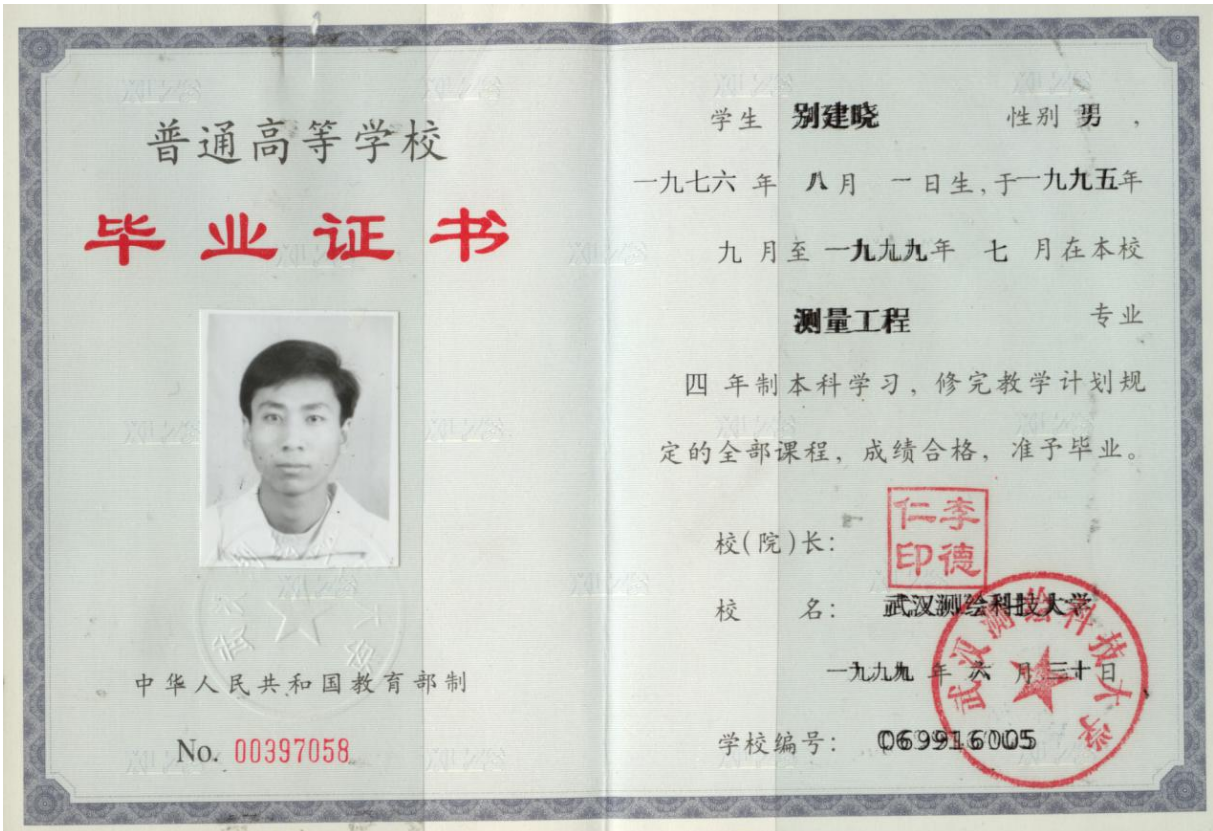 普通高等学校
毕业证书
中华人民共和国教育部制
No. 00397058
学生 别建晓 性别 男，
一九七六年 八月 一日生,于一九九五年
九月至一九九九年 七 月在本校
测量工程 专业
四 年制本科学习，修完教学计划规
定的全部课程，成绩合格，准予毕业。
校(院)长：
李德
仁印
校 名： 武汉测绘科技大学
武汉测绘科技大学
一九九九年六月三十日
学校编号： 069916005